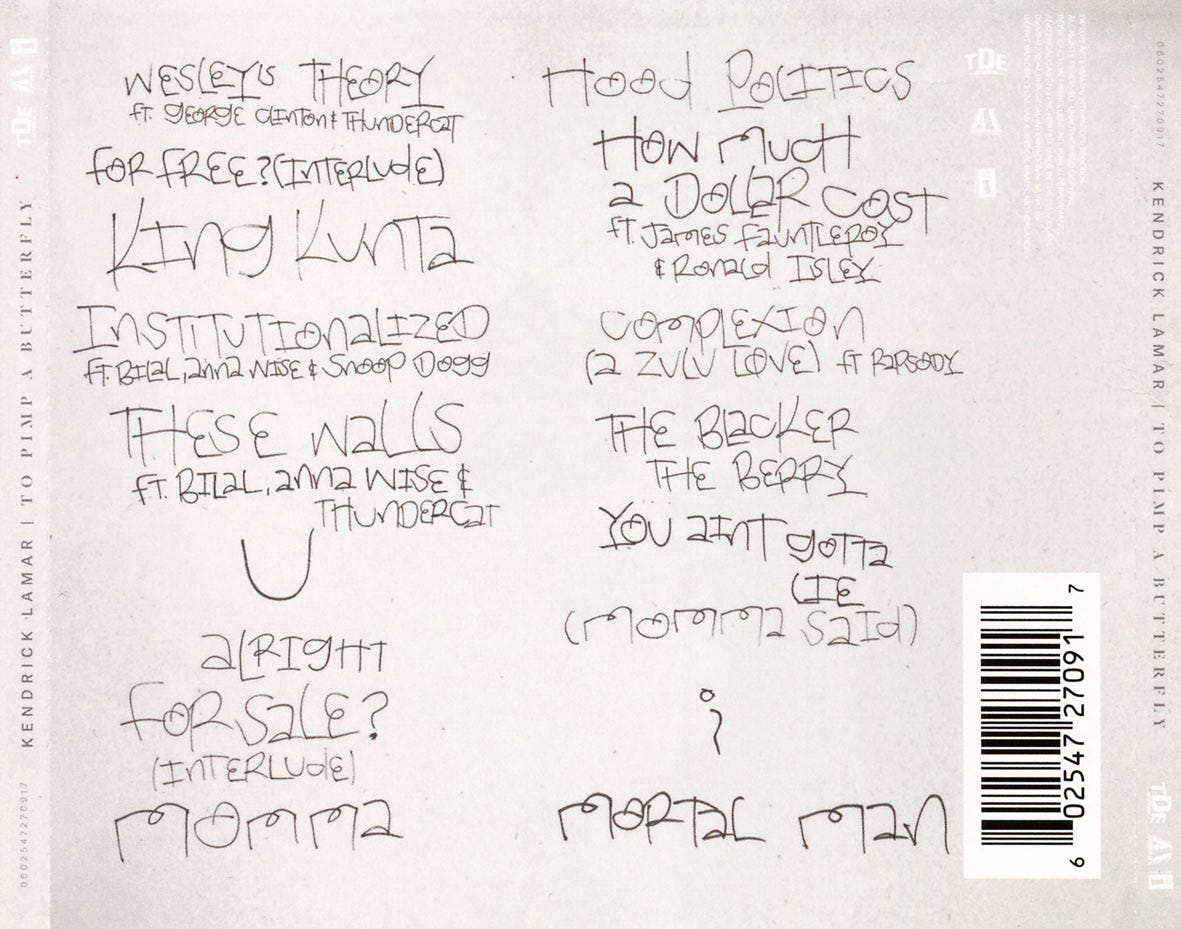 WESLEY'S THEORY
ft. GEORGE CLINTON & THUNDERCAT
FOR FREE? (INTERLUDE)
KING KUNTA
INSTITUTIONALIZED
ft. BILAL, anna WISE & Snoop Dogg
THESE WALLS
ft. BILAL, anna WISE &
THUNDERCAT
U
alRIGHT
FOR SALE?
(INTERLUDE)
MOMMA
Hood POLITICS
HOW MUCH
a DOLLAR COST
ft. JAMES FAUNTLEROY
& RONALD ISLEY
COMPLEXION
(a ZULU LOVE) ft RAPSODY
THE BLACKER
THE BERRY
YOU aINT gOTTa
LIE
(MOMMA SaId)
i
MORTAL MAN
KENDRICK LAMAR | TO PIMP A BUTTERFLY
0602547270917
TDE
KENDRICK LAMAR | TO PIMP A BUTTERFLY
0602547270917
TDE
TDE
6 02547 27091 7